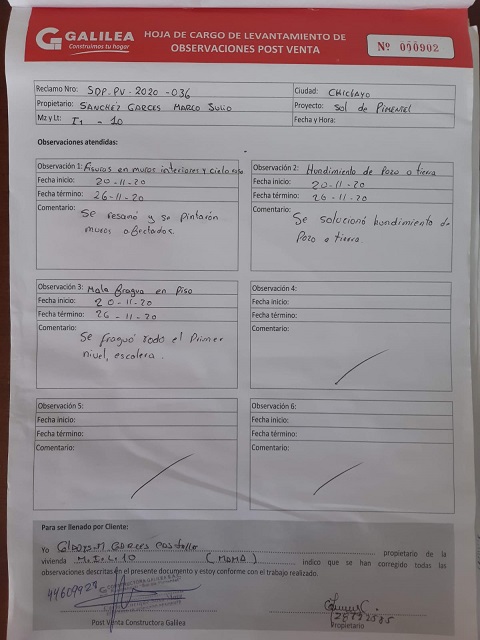 GALILEA
Construimos tu hogar
HOJA DE CARGO DE LEVANTAMIENTO DE
OBSERVACIONES POST VENTA
Nº 000902
Reclamo Nro: SOP.PV-2020-036
Ciudad: CHICLAYO
Propietario: SANCHEZ GARCES MARCO JULIO
Proyecto: Sol de Pimentel
Mz y Lt: I1 - 10
Fecha y Hora:
Observaciones atendidas:
Observación 1: Fisuras en muros interiores y cielo raso
Fecha inicio: 20-11-20
Fecha término: 26-11-20
Comentario: Se resanó y se pintarón
muros afectados.
Observación 2: Hundimiento de Pozo a tierra
Fecha inicio: 20-11-20
Fecha término: 26-11-20
Comentario: Se solucionó hundimiento de
Pozo a tierra.
Observación 3: Mala fragua en Piso
Fecha inicio: 20-11-20
Fecha término: 26-11-20
Comentario: Se fraguó todo el Primer
nivel, escalera.
Observación 4:
Fecha inicio:
Fecha término:
Comentario:
Observación 5:
Fecha inicio:
Fecha término:
Comentario:
Observación 6:
Fecha inicio:
Fecha término:
Comentario:
Para ser llenado por Cliente:
Yo GLADYS M GARCES propietario de la
vivienda (MAMA) indico que se han corregido todas las
observaciones descritas en el presente documento y estoy conforme con el trabajo realizado.
44609928
Post Venta Constructora Galilea
Propietario